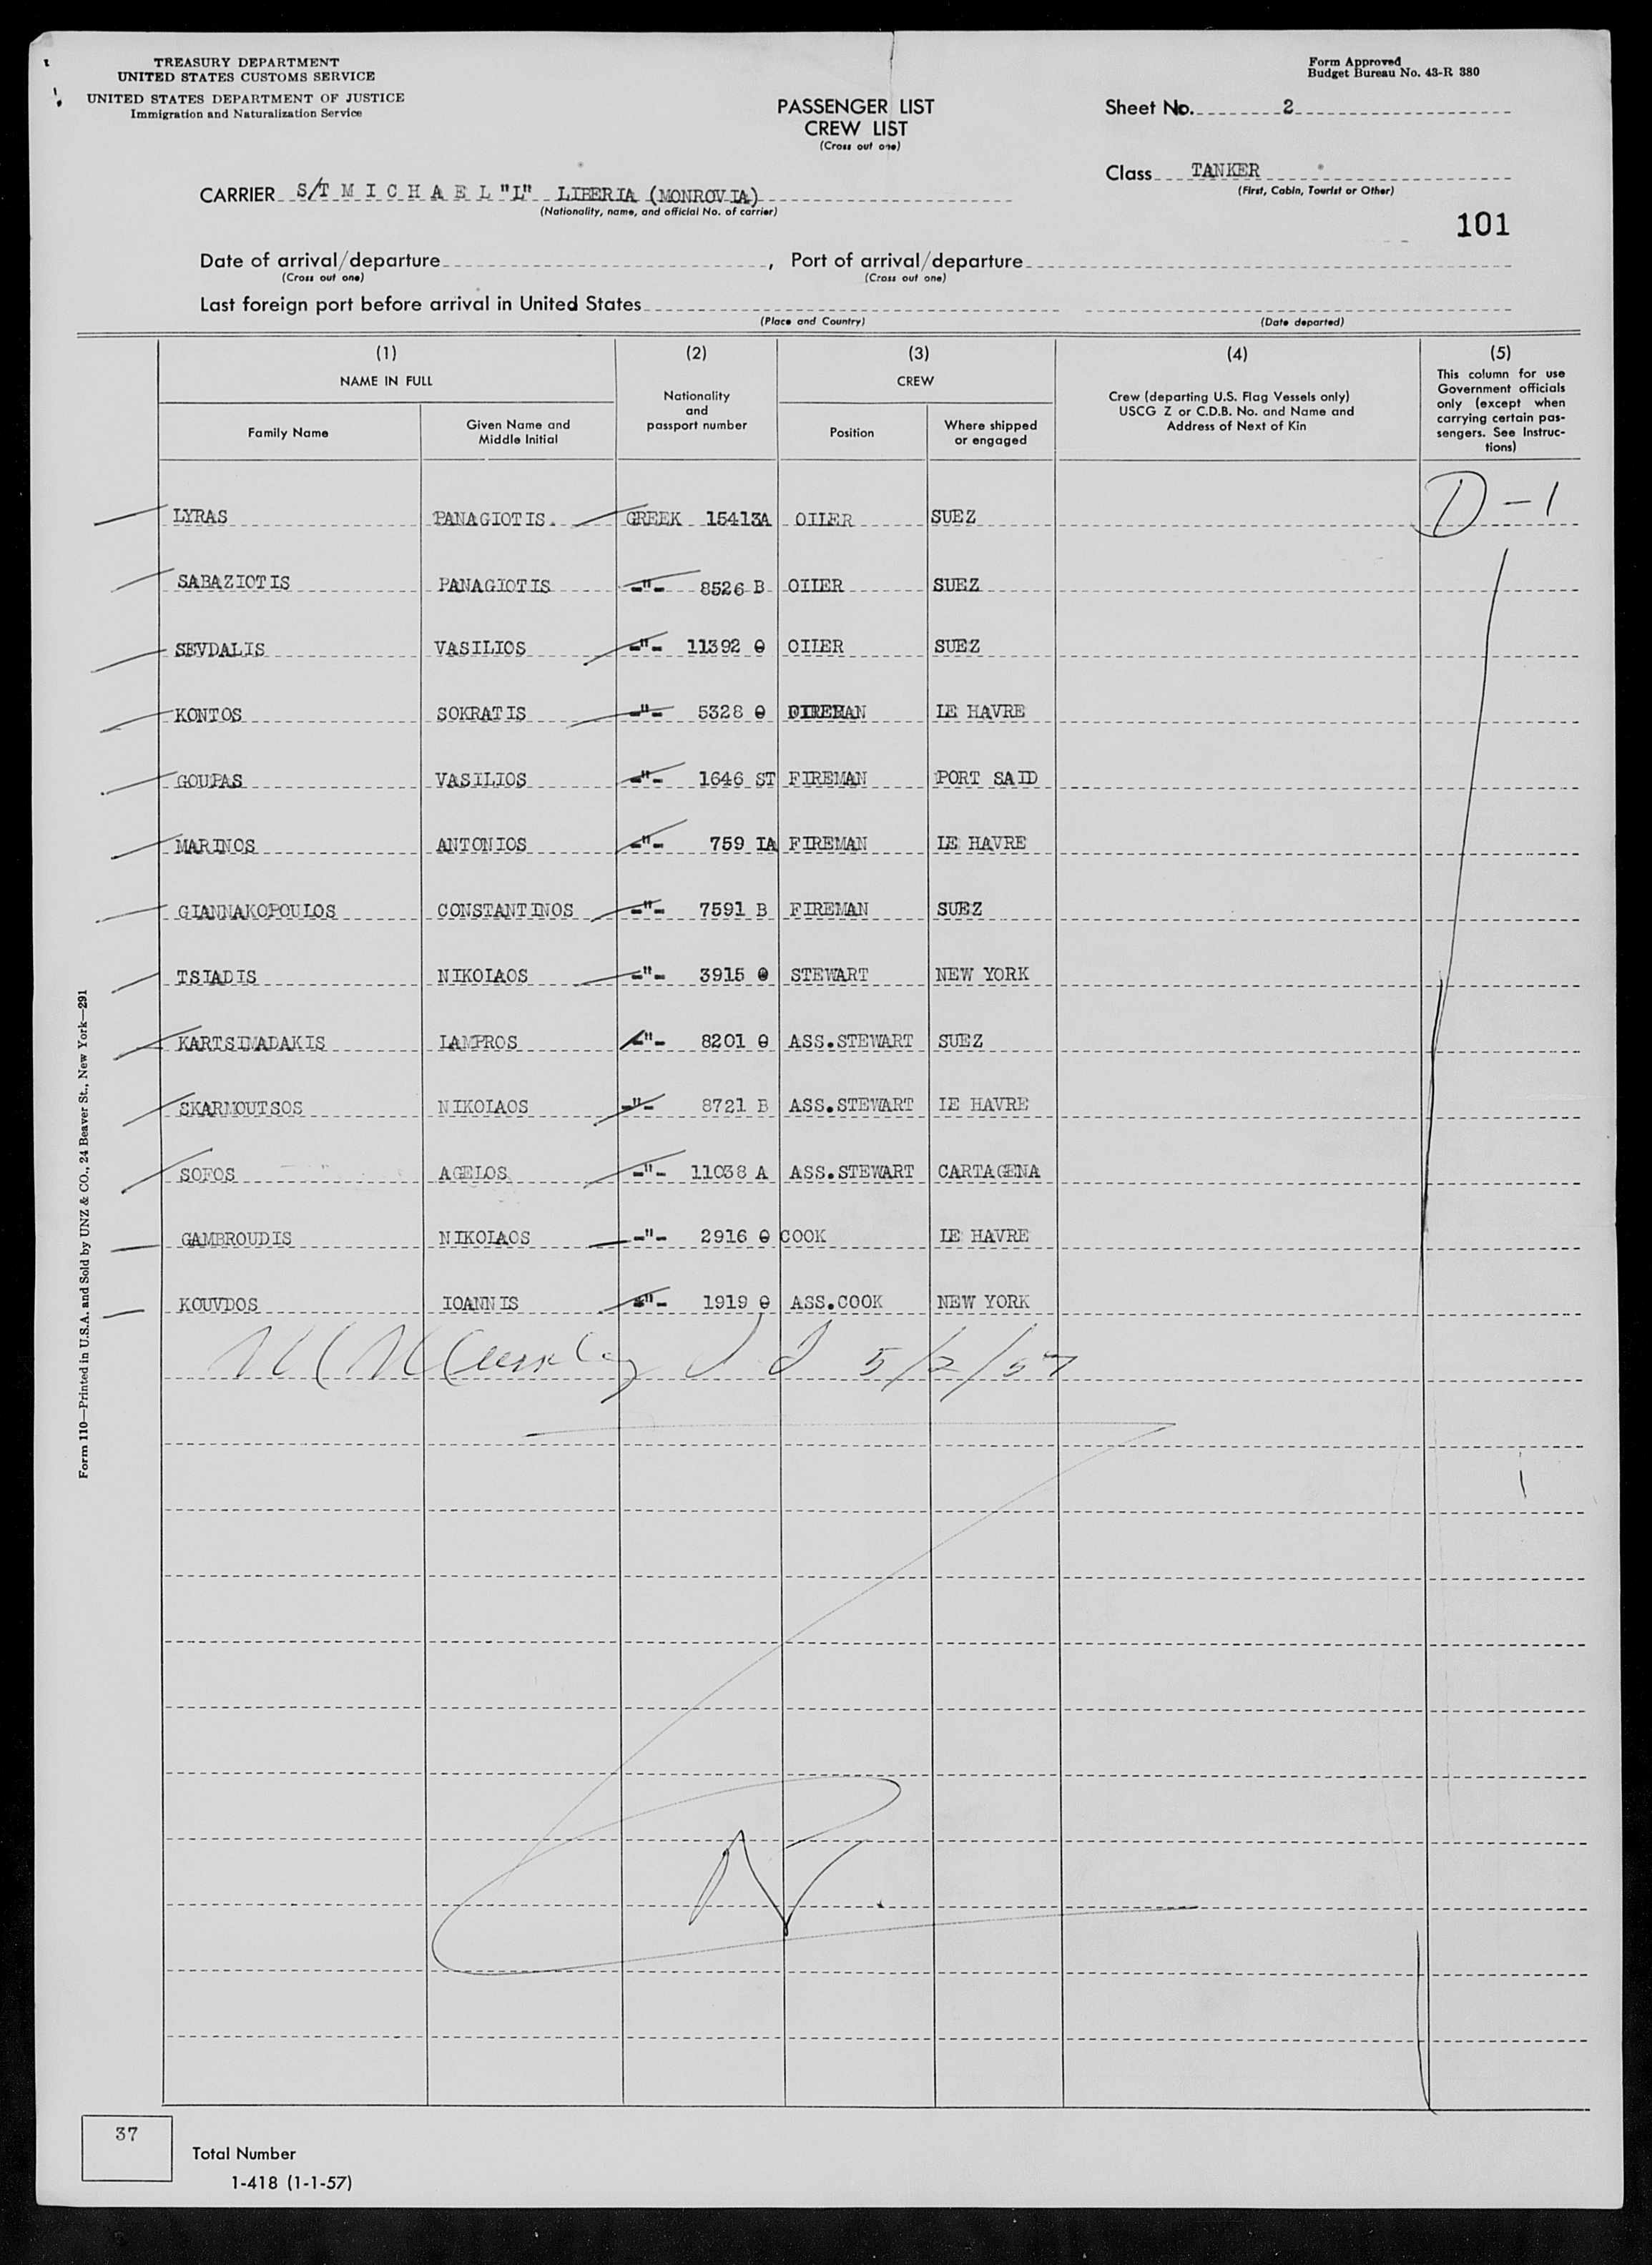 TREASURY DEPARTMENT
UNITED STATES CUSTOMS SERVICE
UNITED STATES DEPARTMENT OF JUSTICE
Immigration and Naturalization Service
Form Approved
Budget Bureau No. 43-R 380
PASSENGER LIST
CREW LIST
(Cross out one)
Sheet No. 2
Class TANKER
(First, Cabin, Tourist or Other)
CARRIER S/T M I C H A E L "L" LIBERIA (MONROVIA)
(Nationality, name, and official No. of carrier)
101
Date of arrival/departure , Port of arrival/departure
(Cross out one) (Cross out one)
Last foreign port before arrival in United States
(Place and Country) (Date departed)
(1) (2) (3) (4) (5)
NAME IN FULL
Family Name
Given Name and
Middle Initial
Nationality
and
passport number
CREW
Position
Where shipped
or engaged
Crew (departing U.S. Flag Vessels only)
USCG Z or C.D.B. No. and Name and
Address of Next of Kin
This column for use
Government officials
only (except when
carrying certain pas-
sengers. See Instruc-
tions)
LYRAS PANAGIOTIS. GREEK 15413A OILER SUEZ D-1
SABAZIOTIS PANAGIOTIS -"- 8526 B OILER SUEZ
SEVDALIS VASILIOS -"- 11392 θ OILER SUEZ
KONTOS SOKRATIS -"- 5328 θ FIREMAN LE HAVRE
GOUPAS VASILIOS -"- 1646 ST FIREMAN PORT SAID
MARINOS ANTONIOS -"- 759 IA FIREMAN LE HAVRE
GIANNAKOPOULOS CONSTANTINOS -"- 7591 B FIREMAN SUEZ
TSIADIS NIKOLAOS -"- 3915 θ STEWART NEW YORK
KARTSIMADAKIS LAMPROS -"- 8201 θ ASS.STEWART SUEZ
SKARMOUTSOS NIKOLAOS -"- 8721 B ASS.STEWART LE HAVRE
SOFOS AGELOS -"- 11038 A ASS.STEWART CARTAGENA
GAMBROUDIS NIKOLAOS -"- 2916 θ COOK LE HAVRE
KOUVDOS IOANNIS -"- 1919 θ ASS.COOK NEW YORK
5/2/57
Form 110—Printed in U.S.A. and Sold by UNZ & CO., 24 Beaver St., New York—291
37
Total Number
1-418 (1-1-57)